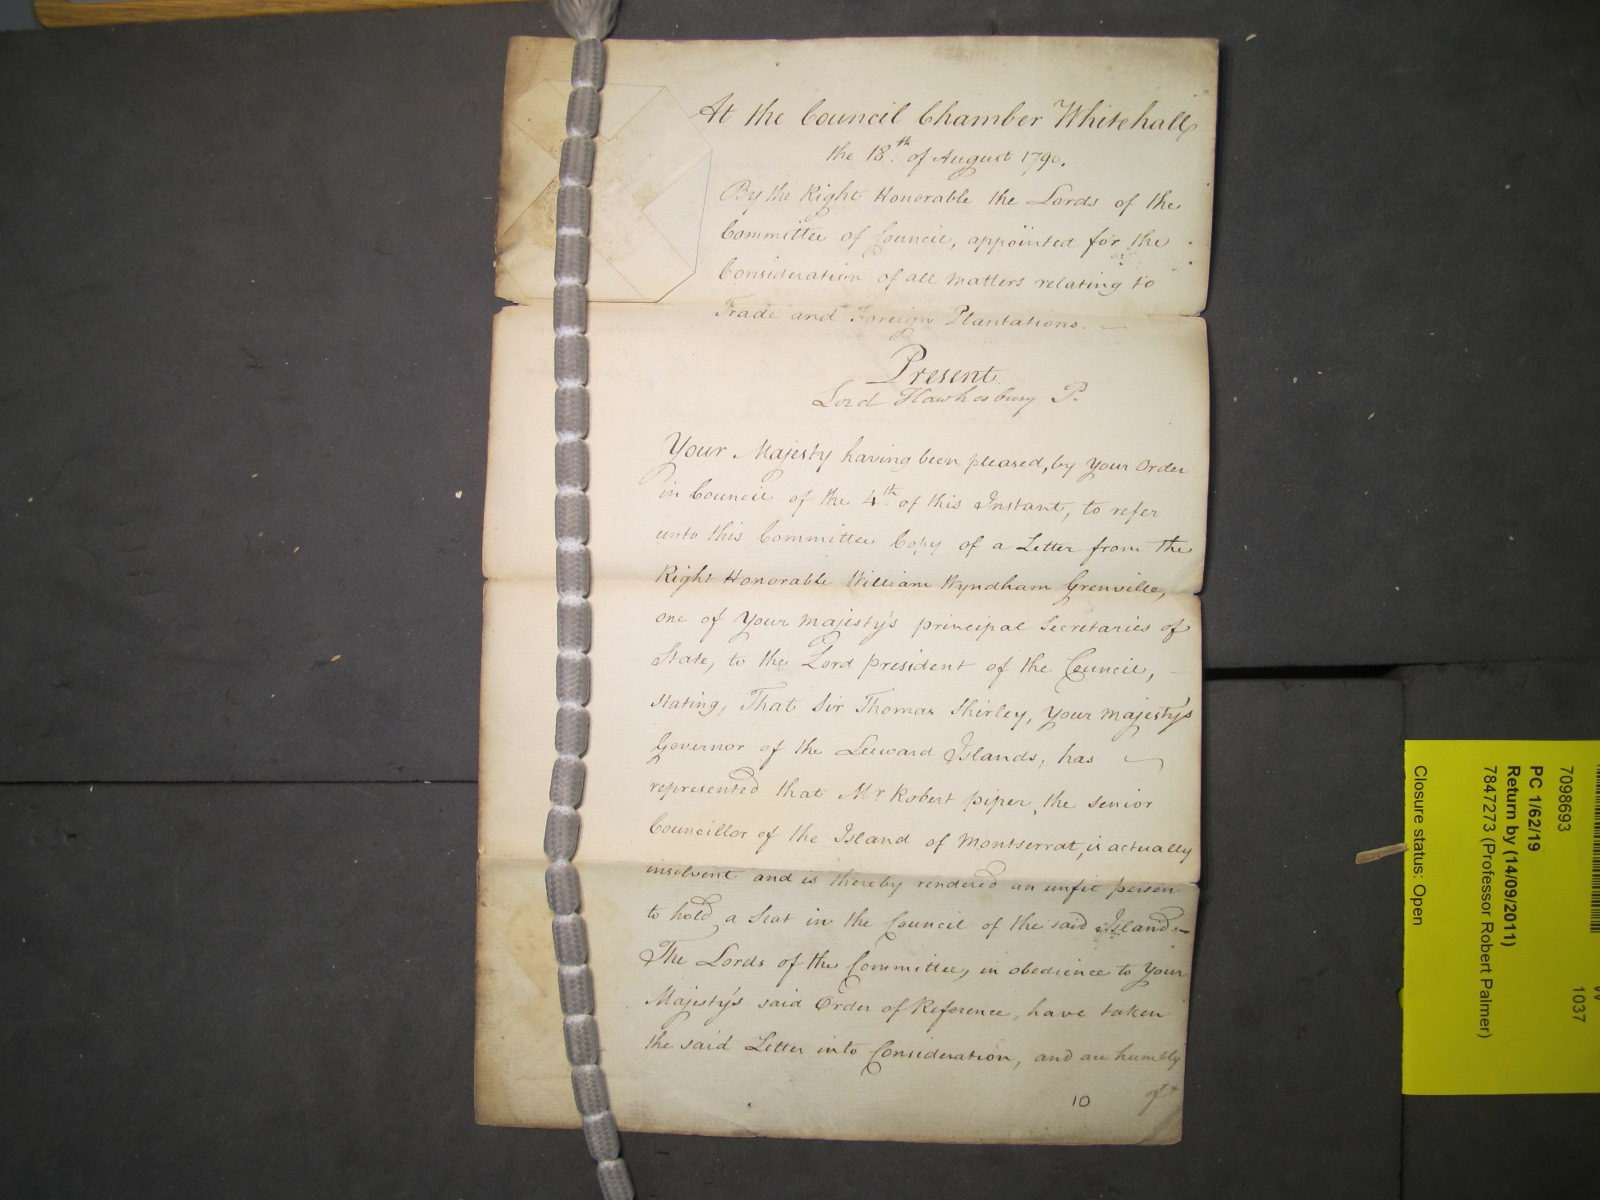 At the Council Chamber Whitehall
the 18.th of August 1790.
By the Right Honorable the Lords of the
Committee of Council, appointed for the
Consideration of all matters relating to
Trade and Foreign Plantations.
Present.
Lord Hawkesbury P.
Your Majesty having been pleased, by Your Order
in Council of the 4th. of this Instant, to refer
unto this Committee Copy of a Letter from the
Right Honorable William Wyndham Grenville,
one of Your Majesty's principal Secretaries of
State, to the Lord President of the Council,
stating, That Sir Thomas Shirley, Your Majesty's
Governor of the Leeward Islands, has
represented that Mr Robert Piper, the senior
Councillor of the Island of Montserrat, is actually
insolvent and is thereby rendered an unfit person
to hold a Seat in the Council of the said Island
The Lords of the Committee, in obedience to Your
Majesty's said Order of Reference, have taken
the said Letter into Consideration, and are humbly
of
10
7098693 1037
PC 1/62/19
Return by (14/09/2011)
7847273 (Professor Robert Palmer)
Closure status: Open